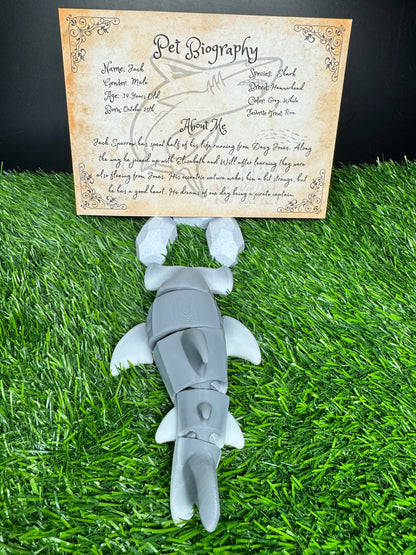 Pet Biography
Name: Jack
Gender: Male
Age: 39 Years Old
Born: October 25th
Species: Shark
Breed: Hammerhead
Color: Gray, White
Favorite Treat: Tuna
About Me
Jack Sparrow has spent half of his life running from Davy Jones. Along
the way he joined up with Elizabeth and Will after learning they were
also fleeing from Jones. His eccentric nature makes him a bit strange, but
he has a good heart. He dreams of one day being a pirate captain.